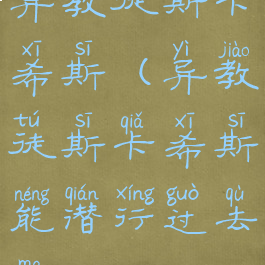 异教徒斯卡
xī sī yì jiào
希斯（异教
tú sī qiǎ xī sī
徒斯卡希斯
néng qián xíng guò qù
能潜行过去
me